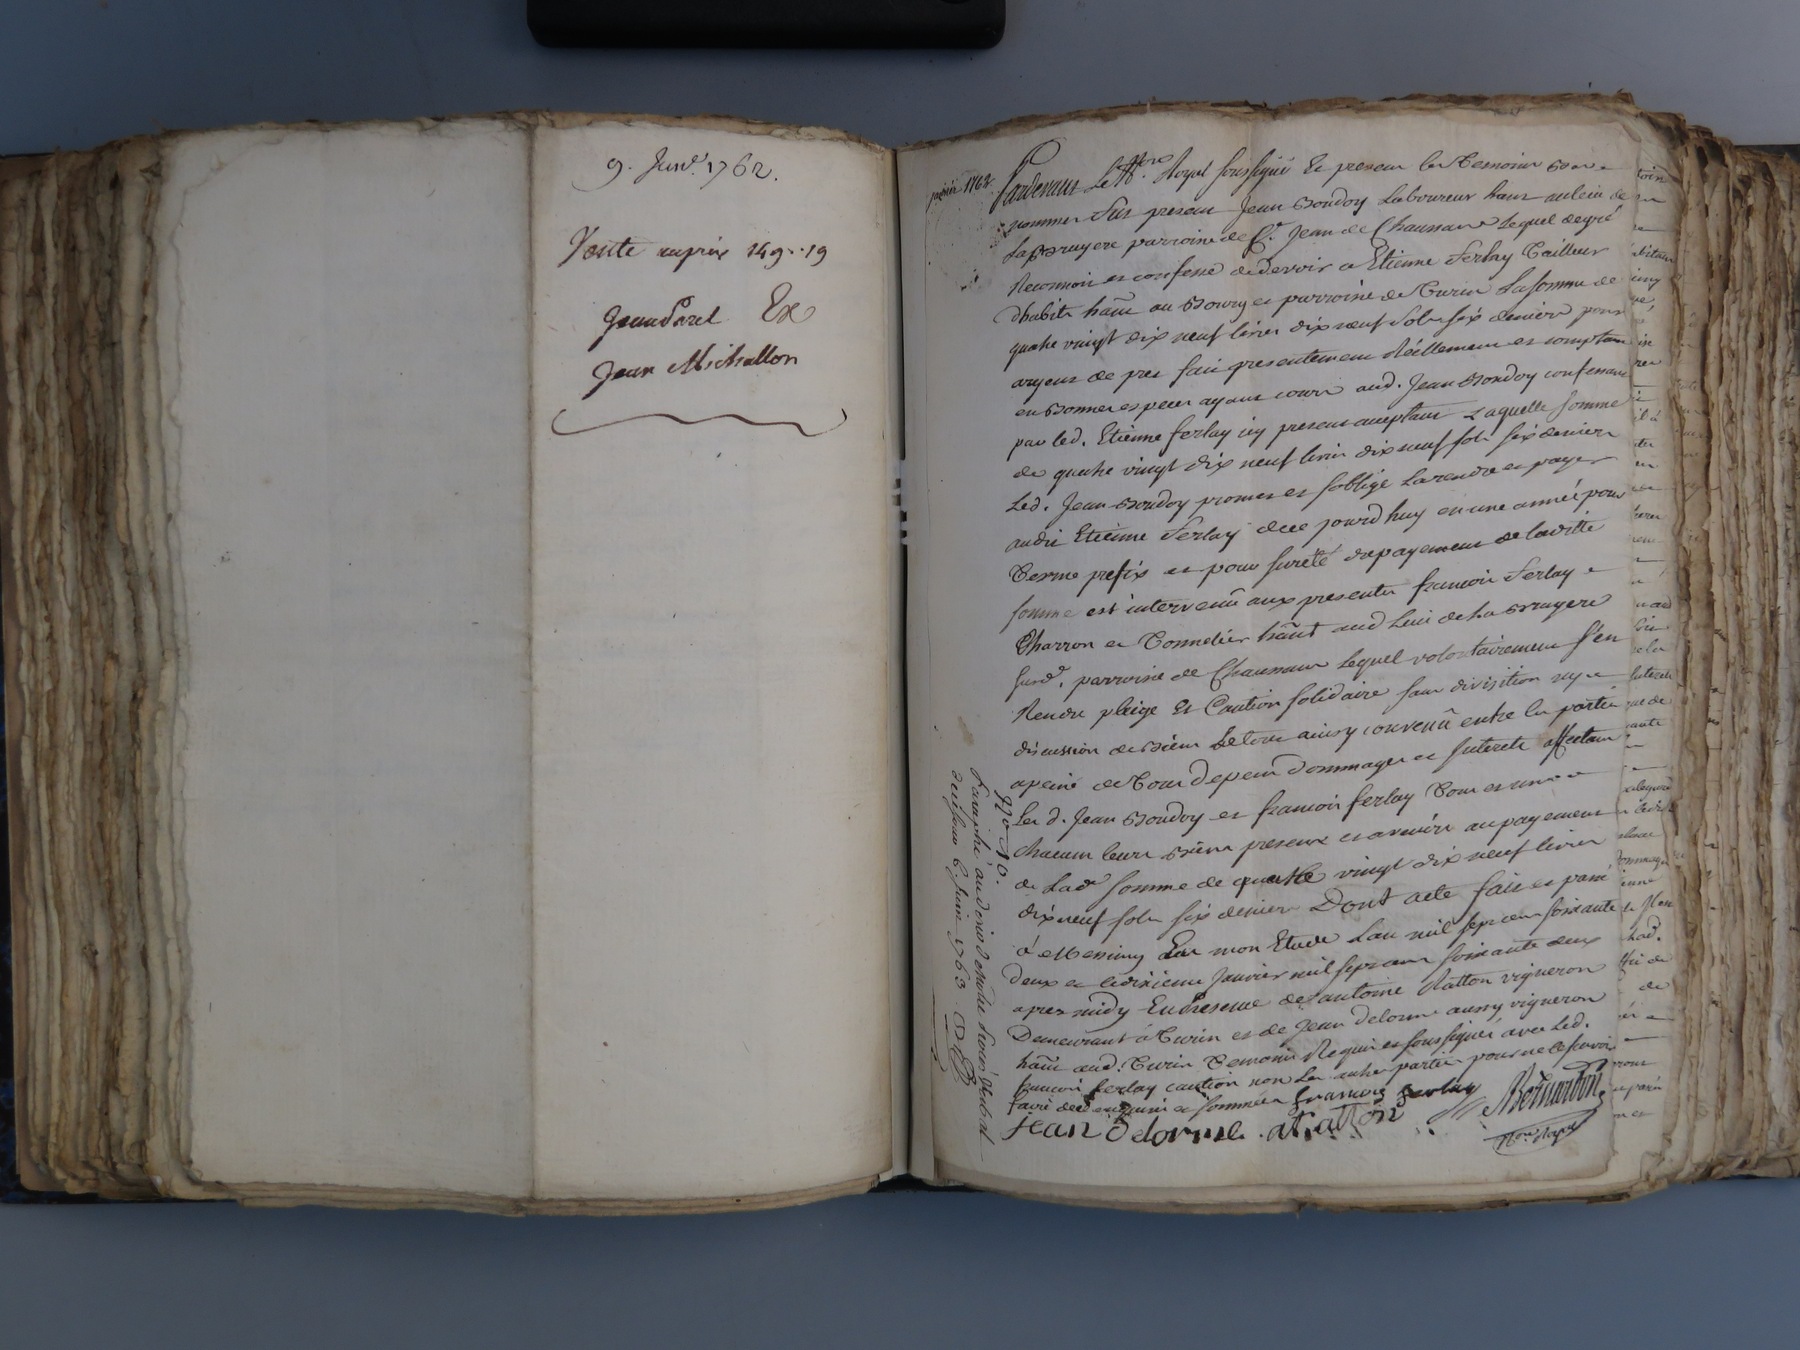 9. Janv. 1762.
Vente au prix 149..19
Jean Parel Ex
Jean Michallon
janvier 1762.
Pardevant Le No.re Royal soussigné Et presens les Temoins Bas
nommes fut present Jean Boudoy Laboureur hant au lieu de
La Bruyere parroisse de St. Jean de Chaussan Lequel de gré
Reconnoit et confesse de devoir a Etienne Ferlay Tailleur
d'habits hant au Bourg et parroisse de Turin La somme de
quatre vingt dix neuf livres dix neuf sols six deniers pour
argent de prest fait presentement Réellement et comptant
en Bonnes especes ayant cours aud. Jean Boudoy confessant
par led. Etienne ferlay icy present acceptant Laquelle somme
de quatre vingt dix neuf livres dix neuf sols six deniers
Led. Jean Boudoy promet et s'oblige La rendre et payer
audit Etienne Ferlay de ce jourd'huy en une année pour
Terme prefix et pour sureté du payement de la ditte
somme est intervenû aux presentes francois Ferlay
Charron et Tonnelier hant aud lieu de La Bruyere
susd. parroisse de Chaussan Lequel volontairement s'en
Rendu pleige Et Caution solidaire sans division ny
discussion de Biens Le tout ainsy convenû entre les parties
a peine de Tous depens dommages et Interets affectant
Les d. Jean Boudoy et francois ferlay Tous et un
chacun leurs Biens presents et avenir au payement
de Lad. somme de quatre vingt dix neuf livres
dix neuf sols six deniers Dont acte fait et passé
à Messimy En mon Etude L'an mil sept cent soixante
deux et le dixieme Janvier mil sept cent soixante deux
apres midy En presence de antoine Ratton vigneron
Demeurant à Turin et de Jean delorme aussy vigneron
hant aud. Turin Temoins Requis et soussignés avec led.
francois ferlay caution non Les autres parties pour ne le scavoir
faire de ce enquis et sommés francois ferlay
Jean Delorme. a Ratton Bernardon
No.re Royal
No. 10.
Paraphé au desir de
6. Juin 1763.